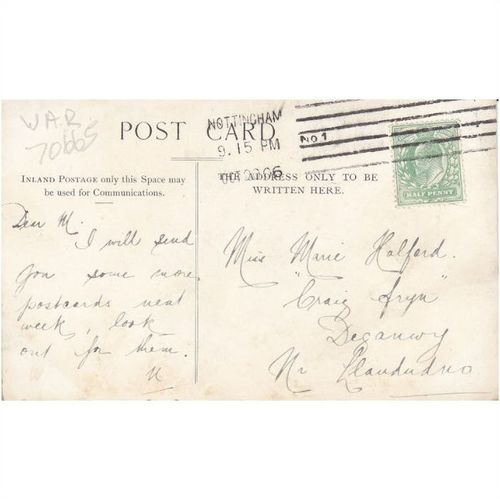 WAR
70665
NOTTINGHAM
9.15 PM
OC 20 06
No 1
POST CARD
INLAND POSTAGE only this Space may
be used for Communications.
THE ADDRESS ONLY TO BE
WRITTEN HERE.
HALF PENNY
Dear M.
I will send
you some more
postcards next
week, look
out for them.
Miss Marie Halford.
"Craig
Deganwy
Nr Llandudno